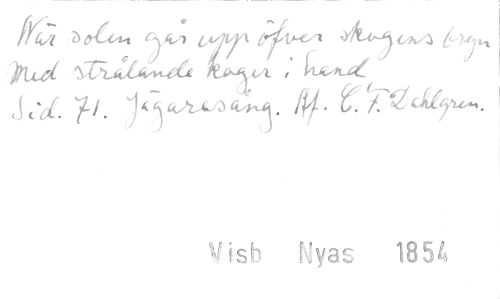 När solen går upp öfver skogens bryn
Med strålande koger i hand
Sid. 71. Jägaresång. Af. C. F. Dahlgren.
Visb Nyas 1854